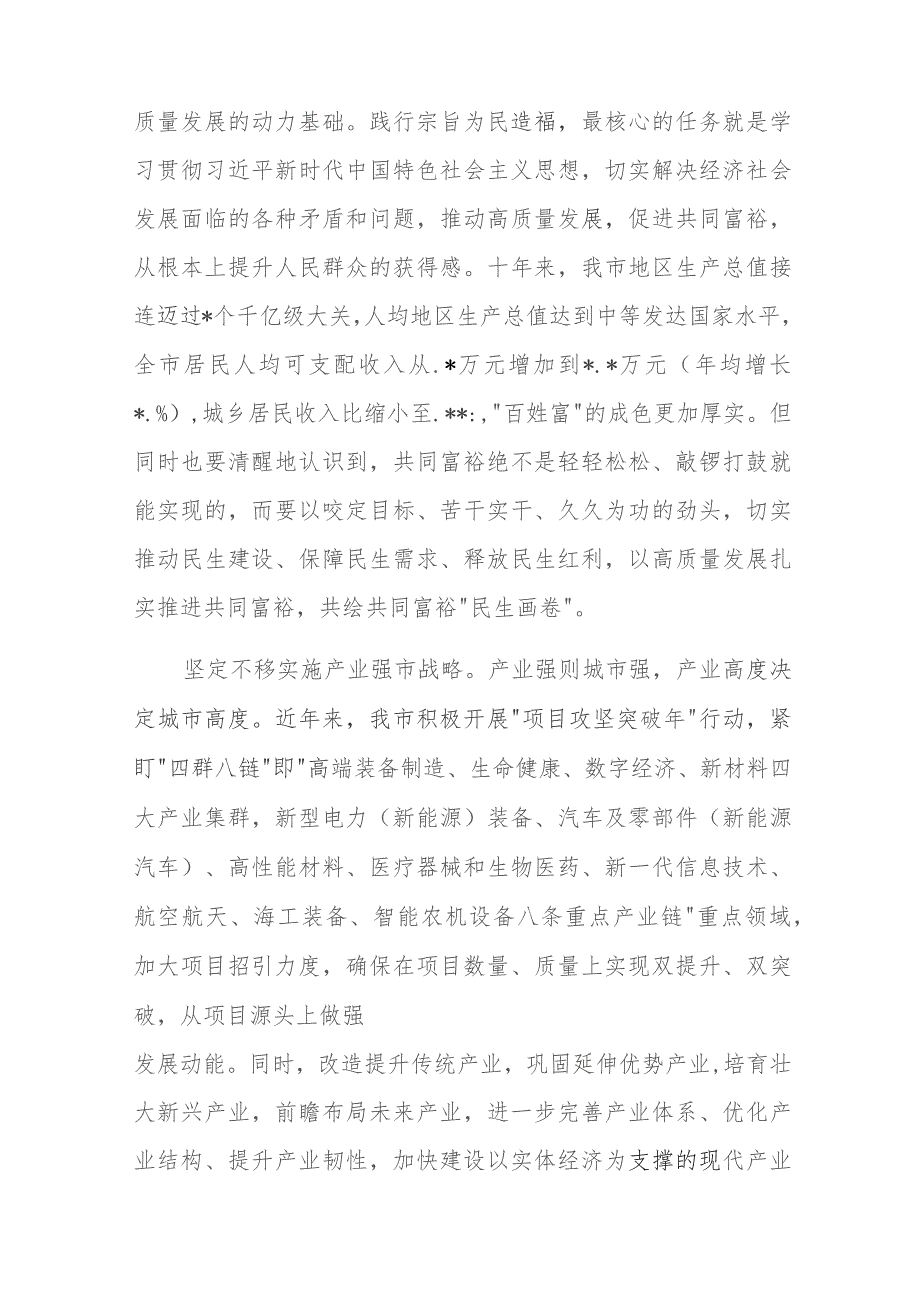 质量发展的动力基础。践行宗旨为民造福，最核心的任务就是学
习贯彻习近平新时代中国特色社会主义思想，切实解决经济社会
发展面临的各种矛盾和问题，推动高质量发展，促进共同富裕，
从根本上提升人民群众的获得感。十年来，我市地区生产总值接
连迈过*个千亿级大关,人均地区生产总值达到中等发达国家水平，
全市居民人均可支配收入从.*万元增加到*.*万元（年均增长
*.%）,城乡居民收入比缩小至.**:,"百姓富"的成色更加厚实。但
同时也要清醒地认识到，共同富裕绝不是轻轻松松、敲锣打鼓就
能实现的，而要以咬定目标、苦干实干、久久为功的劲头，切实
推动民生建设、保障民生需求、释放民生红利，以高质量发展扎
实推进共同富裕，共绘共同富裕"民生画卷"。
坚定不移实施产业强市战略。产业强则城市强，产业高度决
定城市高度。近年来，我市积极开展"项目攻坚突破年"行动，紧
盯"四群八链"即"高端装备制造、生命健康、数字经济、新材料四
大产业集群，新型电力（新能源）装备、汽车及零部件（新能源
汽车）、高性能材料、医疗器械和生物医药、新一代信息技术、
航空航天、海工装备、智能农机设备八条重点产业链"重点领域，
加大项目招引力度，确保在项目数量、质量上实现双提升、双突
破，从项目源头上做强
发展动能。同时，改造提升传统产业，巩固延伸优势产业,培育壮
大新兴产业，前瞻布局未来产业，进一步完善产业体系、优化产
业结构、提升产业韧性，加快建设以实体经济为支撑的现代产业